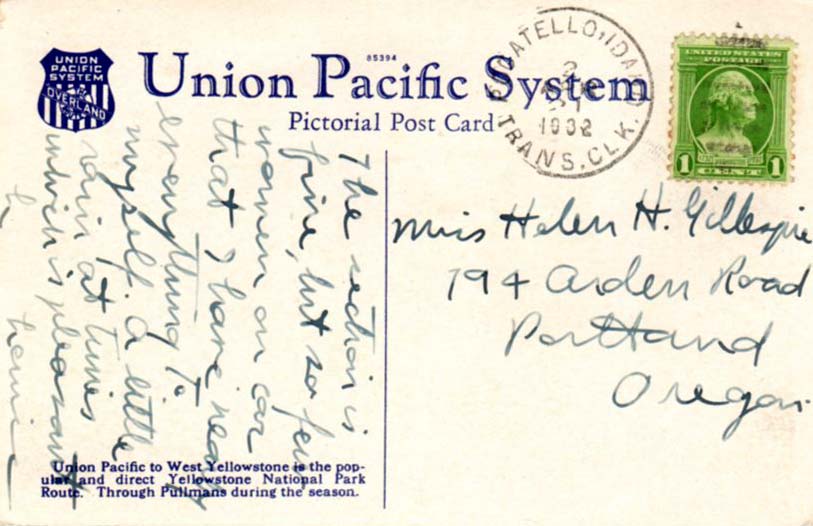 UNION
PACIFIC
SYSTEM
OVERLAND
85394
Union Pacific System
Pictorial Post Card
POCATELLO, IDAHO
2
1932
TRANS. CLK.
UNITED STATES
POSTAGE
1 1
The section is
fine, but so few
women on car
that I have nearly
everything to
myself. A little
rain at times
which is pleasant
Miss Helen H. Gillespie
194 Arden Road
Portland
Oregon.
Union Pacific to West Yellowstone is the pop-
ular and direct Yellowstone National Park
Route. Through Pullmans during the season.